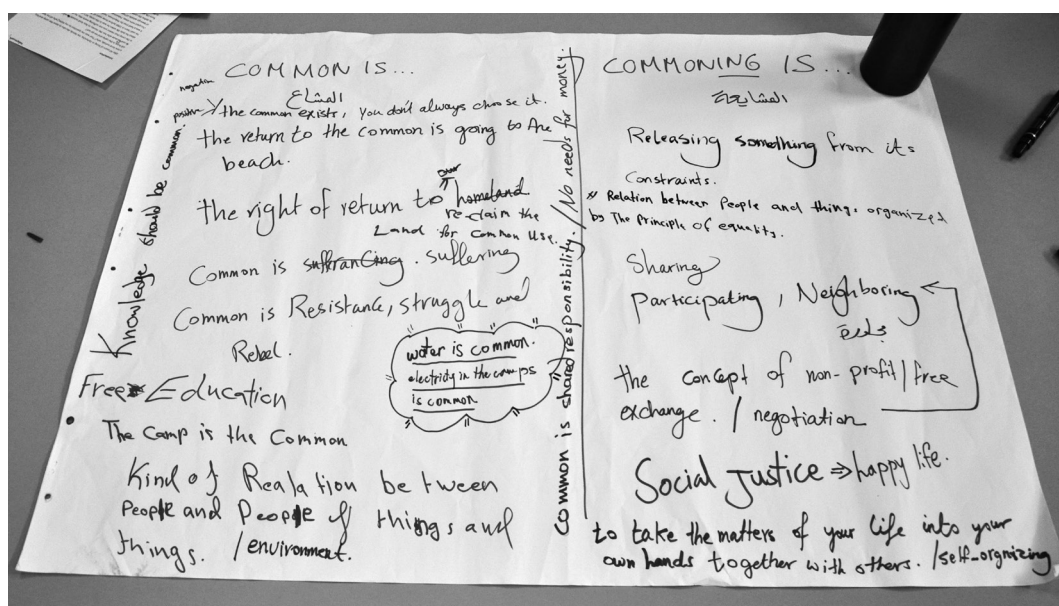 COMMON IS...
المشاع
negation
positive → the common exists, you don't always choose it.
the return to the common is going to the
beach.
the right of return to homeland
re-claim the
Land for common Use.
Common is suffrancing. suffering
Common is Resistance, struggle and
Rebel.
water is common.
electricity in the camps
is common
Free Education
The Camp is the Common
Kind of Realation between
People and People & things and
things. /environment.
Knowledge should be common.
common is shared responsibility. / No needs for money.
COMMONING IS...
المشايعة
Releasing something from its
Constraints.
// Relation between People and things organized
by The Principle of equality.
Sharing
Participating, Neighboring
the concept of non-profit/free
exchange. / negotiation
Social Justice ⇒ happy life.
to take the matters of your life into your
own hands together with others. /self-orgnizing